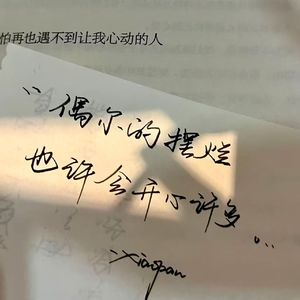 怕再也遇不到让我心动的人
“偶尔的摆烂
也许会开心许多”